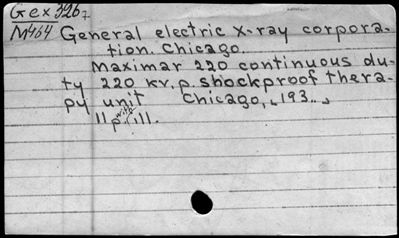 Gex326z
M464 General electric X-ray corpora-
tion. Chicago.
Maximar 220 continuous du-
ty 220 kv.p. shockproof thera-
py unit Chicago, [193..]
11p. with ill.